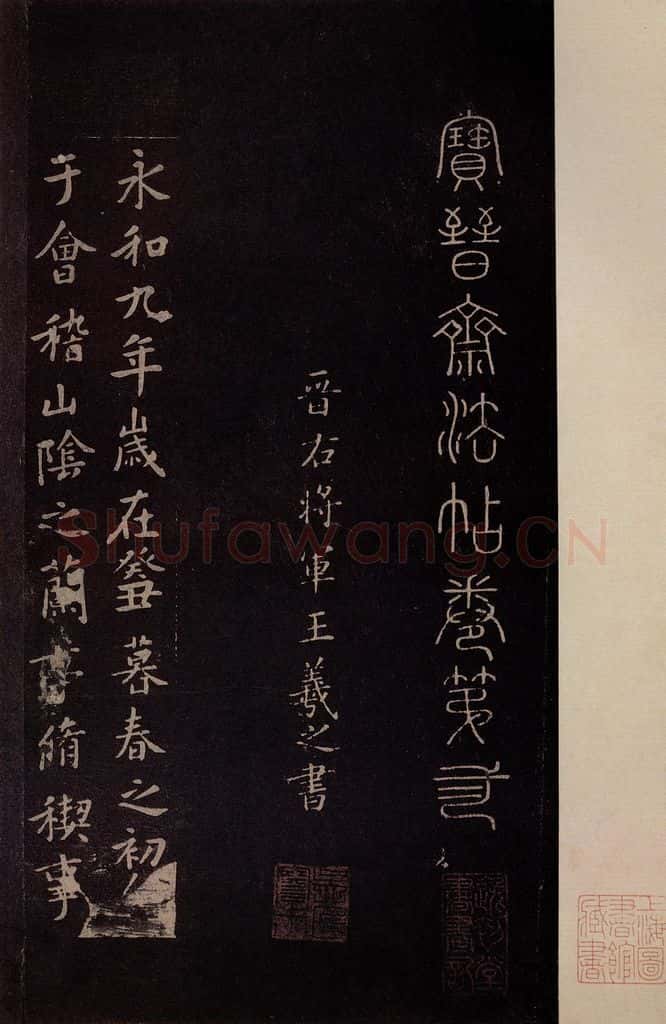 寶晉齋法帖卷第
晉右將軍王羲之書
永和九年歲在癸丑暮春之初
于會稽山陰之蘭亭脩稧事
上海圖書館藏書
Shufawang.CN